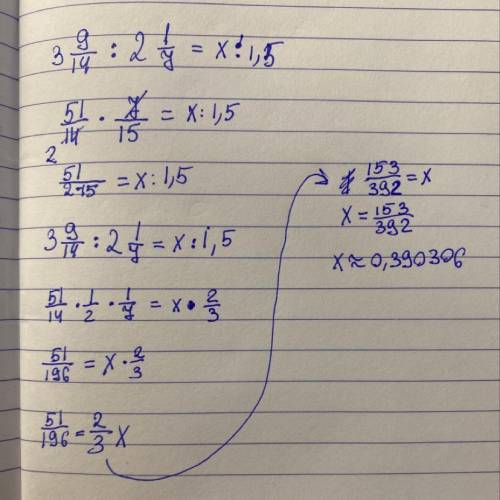 3 9/14 : 2 1/7 = x : 1,5
51/14 · 7/15 = x : 1,5
2
51/2·15 = x : 1,5
3 9/14 : 2 1/7 = x : 1,5
51/14 · 1/2 · 1/7 = x · 2/3
51/196 = x · 2/3
51/196 = 2/3 x
153/392 = x
x = 153/392
x ≈ 0,390306